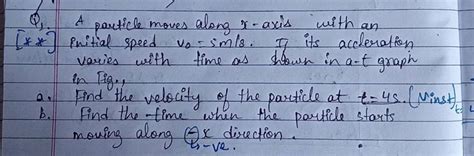 Q1. A particle moves along x-axis with an
[**] initial speed v₀ = 5m/s. If its accleration
varies with time as shown in a-t graph
in Fig.,
a. Find the velocity of the particle at t=4s. (Vinst)t=
b. Find the time when the particle starts
moving along (-)x direction.
↳-ve.